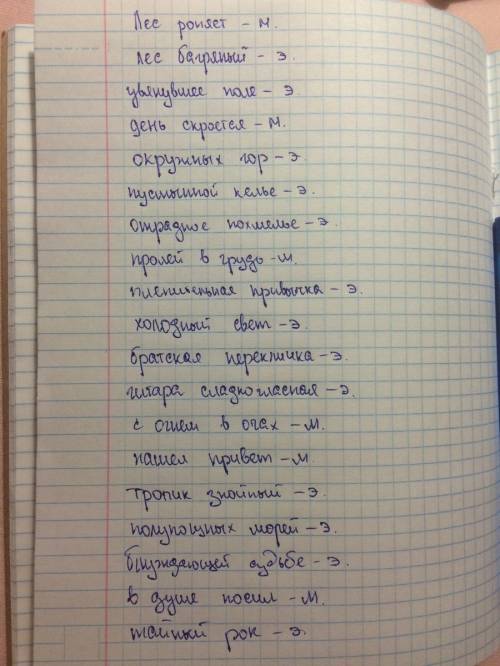 Лес роняет - м.
лес багряный - э.
увянувшее поле - э.
день скроется - м.
окружных гор - э.
пустынной келье - э.
отрадное похмелье - э.
пролей в грудь - м.
пленительная привычка - э.
холодный свет - э.
братская перекличка - э.
гитара сладкогласная - э.
с огнем в очах - м.
нашел привет - м.
тропик знойный - э.
полунощных морей - э.
блуждающей судьбе - э.
в душе носил - м.
тайный рок - э.